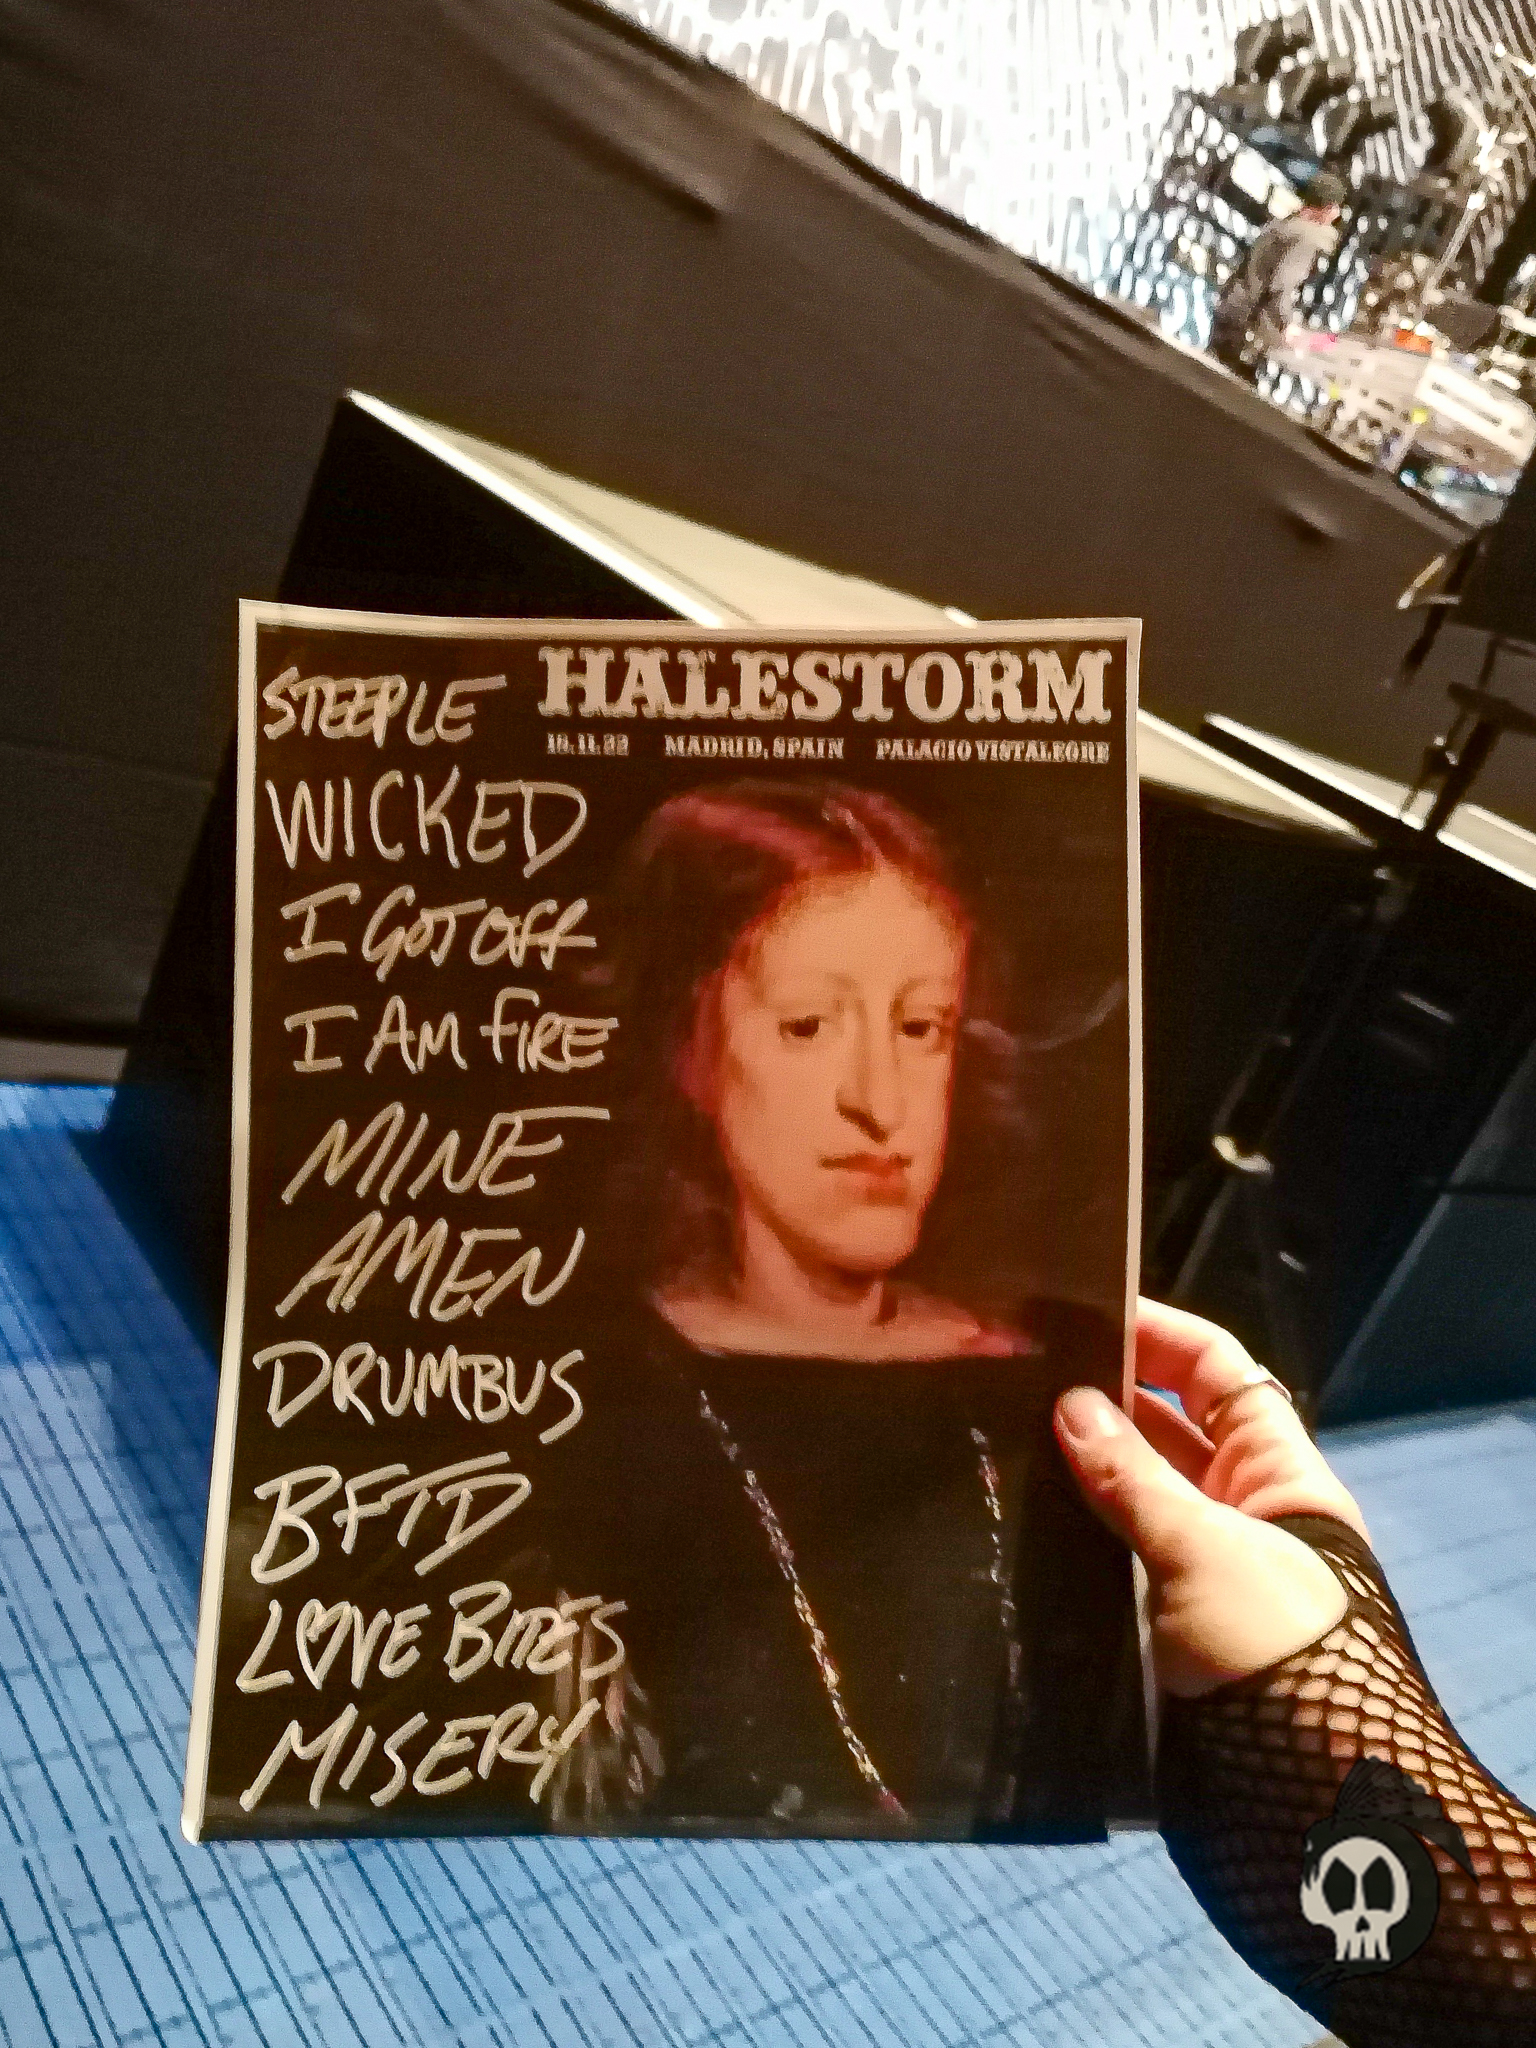 HALESTORM
18.11.22 MADRID, SPAIN PALACIO VISTALEGRE
STEEPLE
WICKED
I GOT OFF
I AM FIRE
MINE
AMEN
DRUMBUS
BFTD
LOVE BITES
MISERY